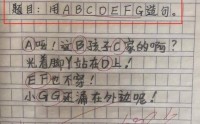 题目:用ABCDEFG造句。
A呀!这B孩子C家的啊?
光着脚丫站在D上!
EF也不穿!
小GG还漏在外边呢!